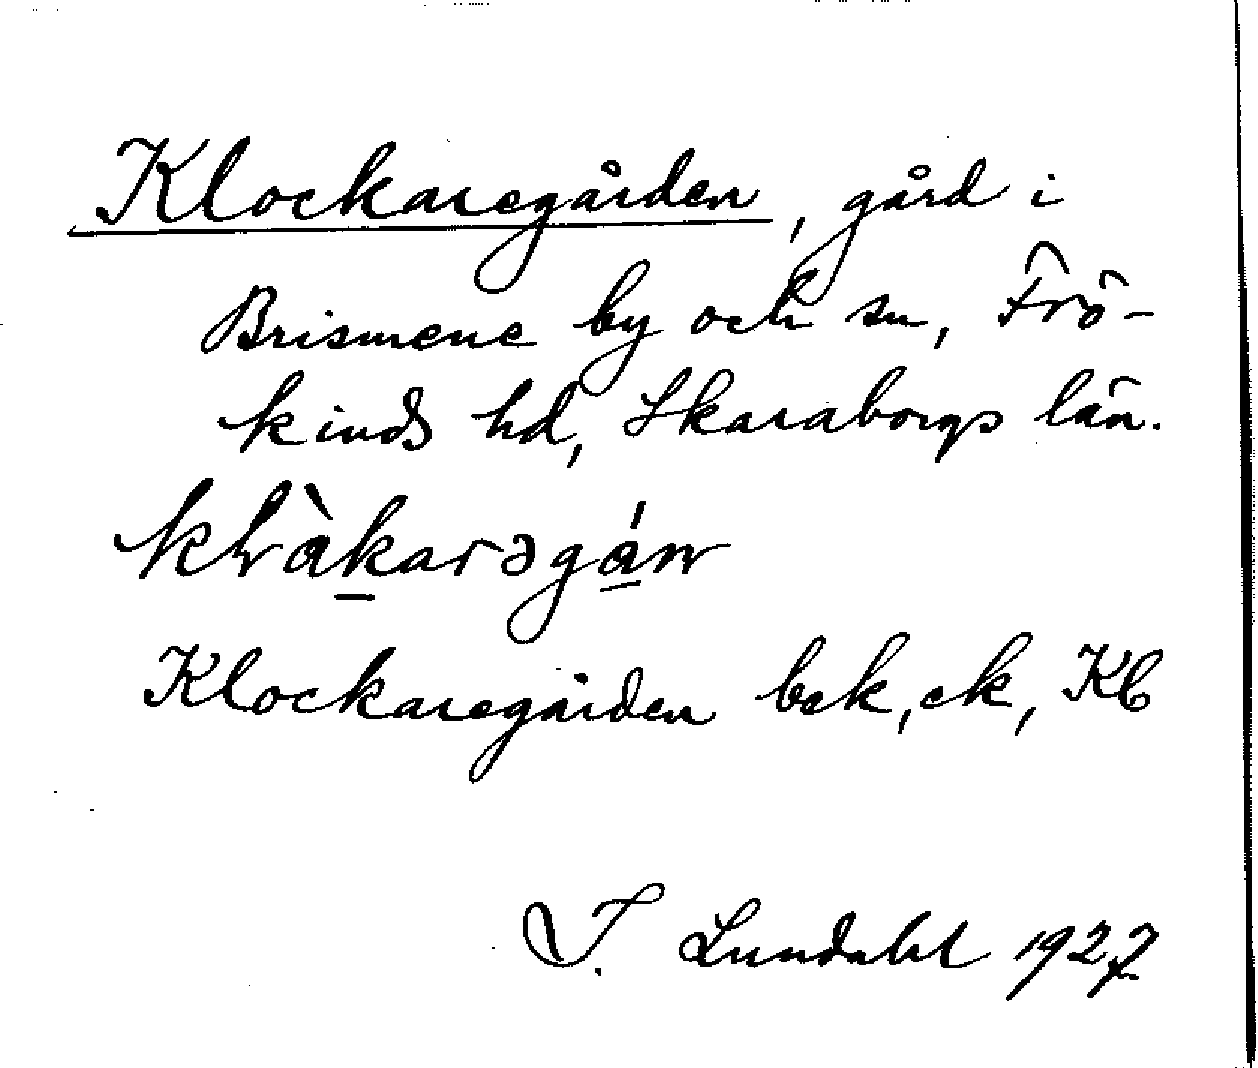 Klockaregården, gård i
Brismene by och sn, Frö-
kinds hd, Skaraborgs län.
Klockaregården bek, ek, Kb
I. Lundahl 1927